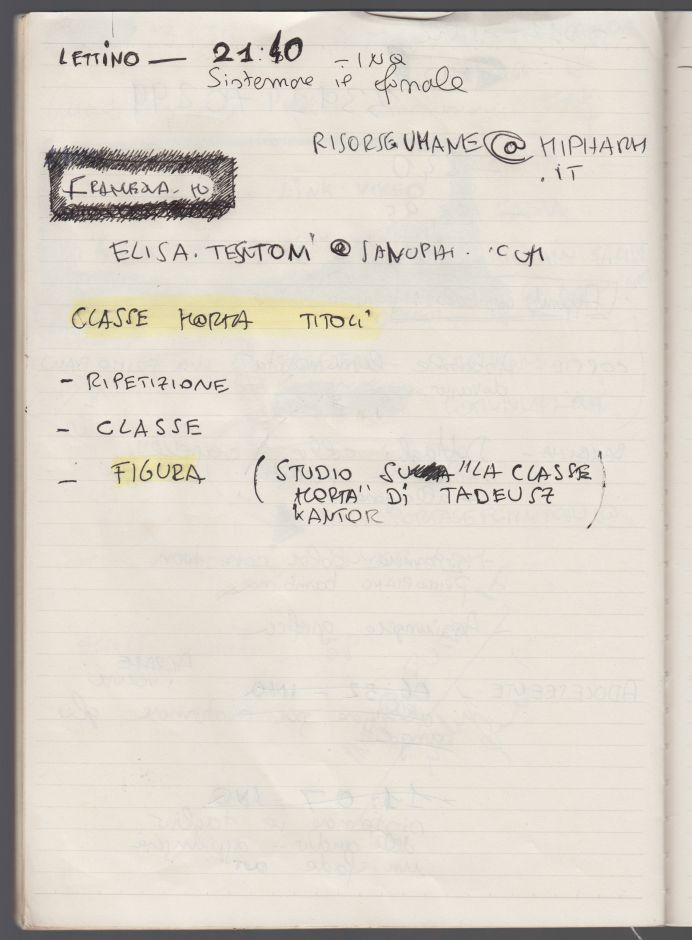 LETTINO — 21:40 - INQ
Sistemare il finale
RISORSEUMANE@MIPHARM
.IT
ELISA. TESTONI @ SANOFI. .COM
CLASSE MORTA TITOLI
- RIPETIZIONE
- CLASSE
- FIGURA (STUDIO SULLA "LA CLASSE
MORTA" DI TADEUSZ
KANTOR)